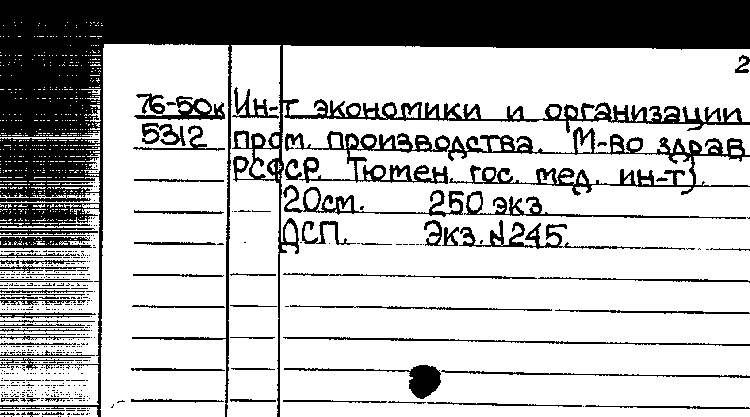 2
76-50к Ин-т экономики и организации
5312 пром. производства. М-во здрав
РСФСР Тюмен. гос. мед. ин-т).
20см. 250 экз.
ДСП. Экз. №245.